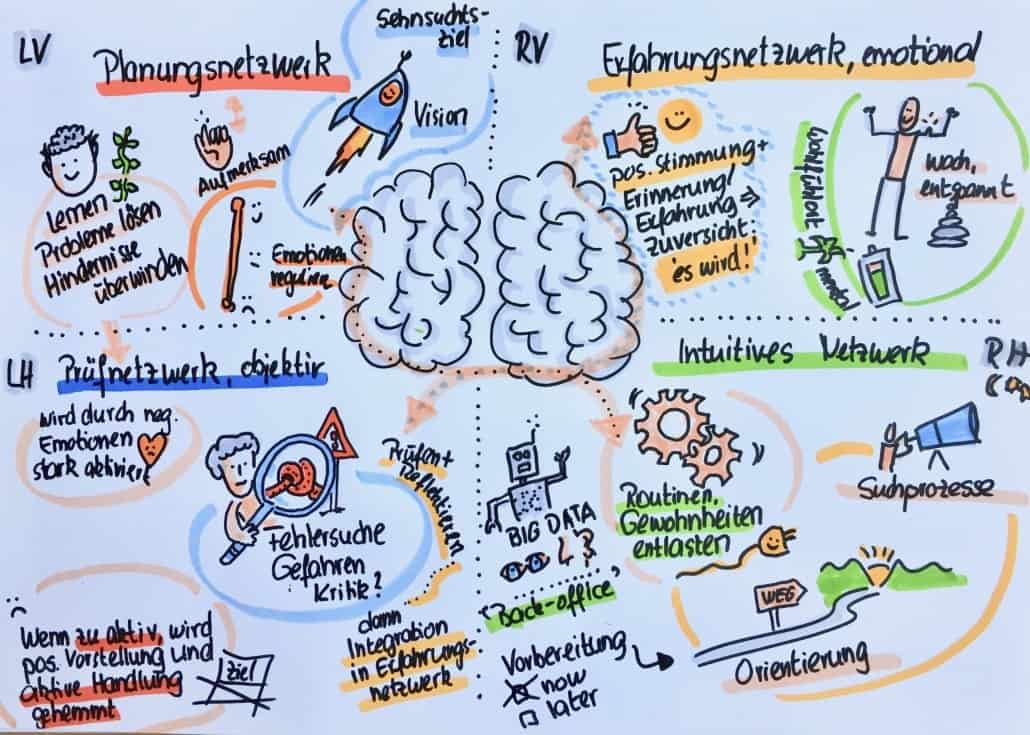 LV
Planungsnetzwerk
Sehnsuchts-
ziel
Vision
Aufmerksam
Lernen
Probleme lösen
Hindernisse
überwinden
Emotionen
regulieren
RV
Erfahrungsnetzwerk, emotional
pos. Stimmung +
Erinnerung/
Erfahrung ⇒
Zuversicht:
'es wird!'
Wohlfühlort
wach,
entspannt
LH
Prüfnetzwerk, objektiv
wird durch neg.
Emotionen
stark aktiviert
Prüfen +
Reflektieren
Fehlersuche
Gefahren
Kritik?
dann
Integration
in Erfahrungs-
netzwerk
Wenn zu aktiv, wird
pos. Vorstellung und
aktive Handlung
gehemmt
Ziel
RH
Intuitives Netzwerk
Routinen,
Gewohnheiten
entlasten
Suchprozesse
BIG DATA
'Back-office'
Vorbereitung
now
later
WEG
Orientierung